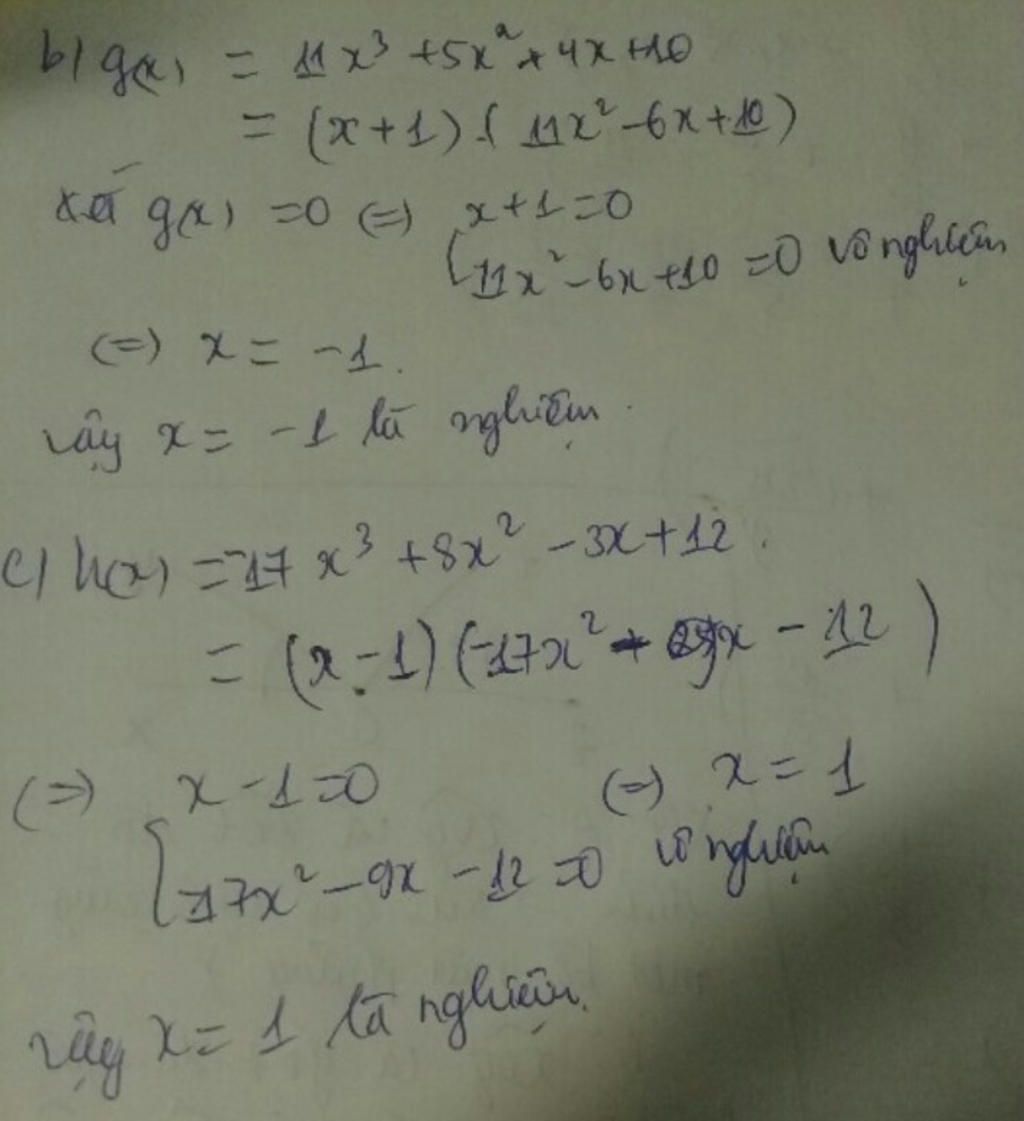 b) g(x) = 11x³ + 5x² + 4x + 10
= (x + 1) ( 11x² - 6x + 10)
xét g(x) = 0 (=) x + 1 = 0
[ 11x² - 6x + 10 = 0 vô nghiệm
(=) x = -1.
vậy x = -1 là nghiệm.
c) h(x) = -17x³ + 8x² - 3x + 12.
= (x - 1) (-17x² - x - 12)
(=) x - 1 = 0 (=) x = 1
[ -17x² - 9x - 12 = 0 vô nghiệm
vậy x = 1 là nghiệm.